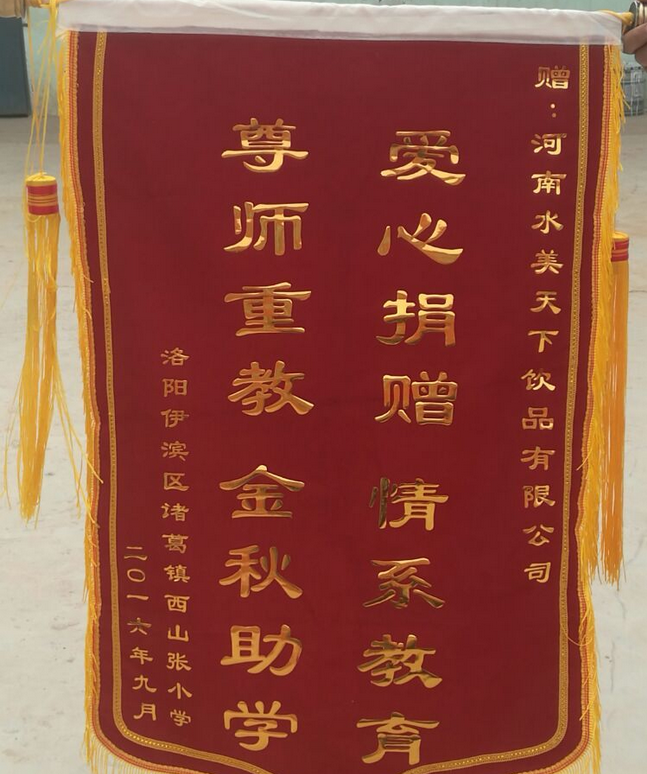 赠：河南水美天下饮品有限公司
爱心捐赠 情系教育
尊师重教 金秋助学
洛阳伊滨区诸葛镇西山张小学
二〇一六年九月